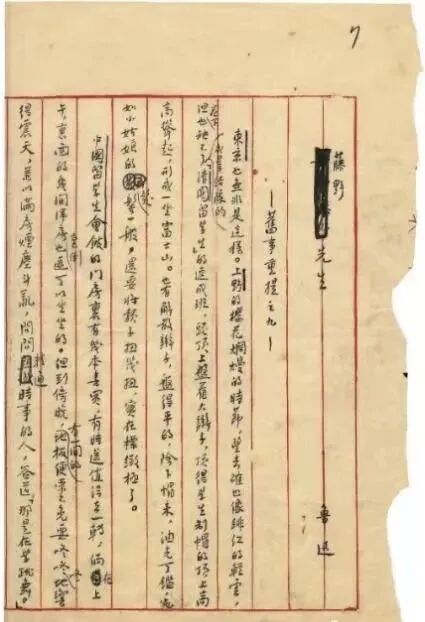 7
藤野先生
魯迅
——舊事重提之九——
東京也無非是這樣。上野的櫻花爛熳的時節,望去確也像緋紅的輕雲,
但花下也缺不了成羣結隊的「清國留學生」的速成班,頭頂上盤着大辮子,頂得學生制帽的頂上高
高聳起,形成一坐富士山。也有解散辮子,盤得平的,除下帽來,油光可鑑,宛
如小姑娘的髮髻一般,還要將頸子扭幾扭,實在標緻極了。
中國留學生會館的門房裏有幾本書賣,有時還值得去一轉;倘在上
午,裏面的幾間洋房裏倒也還可以坐坐的。但到傍晚,有一間的地板便常不免要咚咚地響
得震天,兼以滿房煙塵斗亂;問問精通時事的人,答道,「那是在學跳舞。」